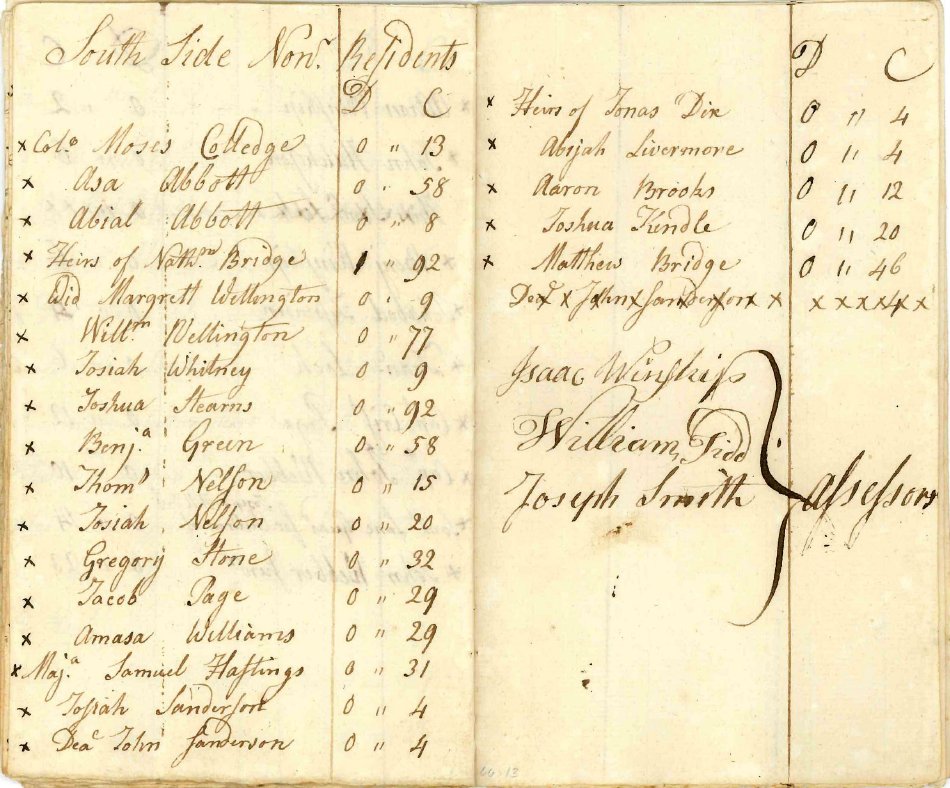 South Side Non.r Residents
D C
x Col.o Moses Colledge 0 " 13
x Asa Abbott 0 " 58
x Abial Abbott 0 " 8
x Heirs of Nath.n Bridge 1 " 92
x Wid Margrett Wellington 0 " 9
x Will.m Wellington 0 " 77
x Josiah Whitney 0 " 9
x Joshua Stearns 0 " 92
x Benj.a Green 0 " 58
x Thom.s Nelson 0 " 15
x Josiah Nelson 0 " 20
x Gregory Stone 0 " 32
x Jacob Page 0 " 29
x Amasa Williams 0 " 29
x Maj.a Samuel Hastings 0 " 31
x Josiah Sanderson 0 " 4
x Dea.c John Sanderson 0 " 4
D C
x Heirs of Jonas Dix 0 " 4
x Abijah Livermore 0 " 4
x Aaron Brooks 0 " 12
x Joshua Kendle 0 " 20
x Matthew Bridge 0 " 46
Dea.c John Sanderson x x x x x 4 x
Isaac Winship
William Tidd
Joseph Smith
Assessors